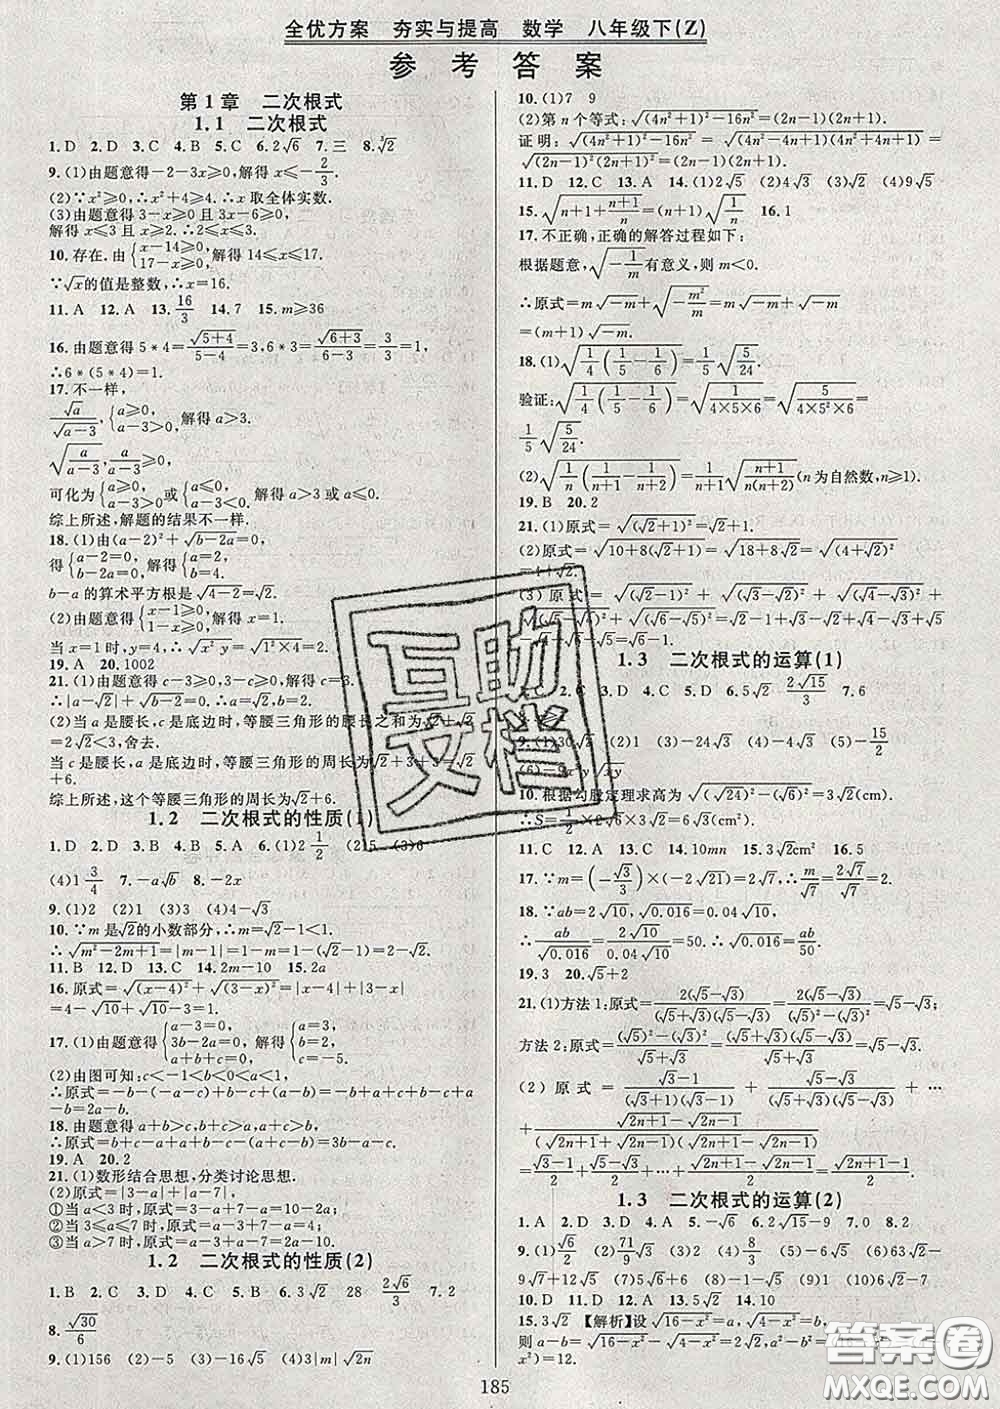 全优方案 夯实与提高 数学 八年级下(Z)
参考答案
第1章 二次根式
1.1 二次根式
1.D 2.D 3.C 4.B 5.C 6.2√6 7.三 8.∛2
9.(1)由题意得-2-3x≥0,解得 x≤-2/3.
(2)∵x²≥0,∴x²+4≥4.∴x取全体实数.
(3)由题意得3-x≥0且3x-6≥0,
解得 x≤3且x≥2.∴2≤x≤3.
10.存在.由{x-14≥0, 17-x≥0}解得14≤x≤17.
∵√x的值是整数,∴x=16.
11.A 12.A 13.16/3 14.7 15.m≥36
16.由题意得5*4=√(5+4)/(5-4)=3,6*3=√(6+3)/(6-3)=3/3=1,
∴6*(5*4)=1.
17.不一样,
√a/√(a-3),{a≥0, a-3>0,解得a>3.
√(a/(a-3)),a/(a-3)≥0,
可化为{a≥0, a-3>0或{a≤0, a-3<0.解得a>3或a≤0.
综上所述,解题的结果不一样.
18.(1)由(a-2)²+√(b-2a=0),
得{a-2=0, b-2a=0,解得{a=2, b=4.
b-a的算术平方根是√(4-2)=√2.
(2)由题意得{x-1≥0, 1-x≥0,解得x=1.
当x=1时,y=4,√(x²y)=√(1²×4)=2.
19.A 20.1002
21.(1)由题意得c-3≥0,3-c≥0,解得c=3.
∴|a-√2|+√(b-2)=0.∴a=√2,b=2.
(2)当a是腰长,c是底边时,等腰三角形的腰长之和为√2+√2
=2√2<3,舍去.
当c是腰长,a是底边时,等腰三角形的周长为√2+3+3=√2
+6.
综上所述,这个等腰三角形的周长为√2+6.
1.2 二次根式的性质(1)
1.D 2.D 3.A 4.B 5.A 6.(1)2 1/2 (2)5 (3)6
(4)1 3/4 7.-a√b 8.-2x
9.(1)2 (2)1 (3)3 (4)4-√3
10.∵m是√2的小数部分,∴m=√2-1<1.
∴√(m²-2m+1)=|m-1|=1-m=1-(√2-1)=2-√2.
11.B 12.D 13.C 14.2m-10 15.2a
16.原式=√(x-4)²+√(3-x)²=|x-4|+|3-x|
=4-√10+√10-3=1.
17.(1)由题意得{a-3=0, 3b-2a=0, a+b+c=0解得{a=3, b=2, c=-5.
(2)由图可知:c<-1<b<0<1<a,
∴原式=b-(-a-c)+b-c+(a-c)=b+a+c+b-c+a-c=
b-c=2a-b.
18.由题意得a+b>c,b+c>a,a+c>b,
∴原式=b+c-a+a+b-c-(a+c-b)=b+c-a+a+b-c-a-c
+b=3b-a-c.
19.A 20.2
21.(1)数形结合思想,分类讨论思想.
(2)原式=|3-a|+|a-7|,
①当a<3时,原式=3-a+7-a=10-2a;
②当3≤a≤7时,原式=a-3+7-a=4;
③当a>7时,原式=a-3+a-7=2a-10.
1.2 二次根式的性质(2)
1.B 2.C 3.C 4.B 5.B 6.3√2 28 2√6/3 7.2
8.√30/6
9.(1)156 (2)-5 (3)-16√5 (4)3|m|√(2n)
10.(1)7 9
(2)第n个等式:√((4n²+1)²-16n²)=(2n-1)(2n+1).
证明:√((4n²+1)²-16n²)=√((4n²+1-4n)(4n²+4n+1))=
√((2n-1)²(2n+1)²)=(2n-1)(2n+1).
11.D 12.C 13.A 14.(1)2√5 (2)6 (3)6√5 (4)9√5
15.√(n+1+(n+1)/n)=(n+1)√(1/n) 16.1
17.不正确,正确的解答过程如下:
根据题意,√(-1/m)有意义,则m<0.
∴原式=√(-m)+√(-m²/m)=m√(-m)+√(-m)
=(m+1)√(-m).
18.(1)√(1/4(1/5-1/6))=1/5√(5/24).
验证:√(1/4(1/5-1/6))=√(1/(4×5×6))=√(5/(4×5²×6))=
1/5√(5/24).
(2)√(1/n(1/(n+1)-1/(n+2)))=1/(n+1)√((n+1)/(n(n+2)))(n为自然数,n≥1).
19.B 20.2
21.(1)原式=√((√2+1)²)=√2+1.
(2)原式=√(10+8(√2+1))=√(18+8√2)=√((4+√2)²)
=4+√2.
(3)原式=√((√2-1)²)+√((√3-√2)²)+√((√4-√3)²)+
√6-1.
1.3 二次根式的运算(1)
C 3.D 4.C 5.D 6.5√2 2√15/3 7.6
9.(1)30√2 (2)1 (3)-24√3 (4)-4√3 (5)-15/2
(6)-9x²y√(xy)
10.根据勾股定理求高为√((√24)²-(√6)²)=3√2(cm),
∴S=1/2×2√6×3√2=6√3(cm²).
11.C 12.A 13.C 14.10mn 15.3√2cm² 16.5
17.∵m=(-√3/3)×(-2√21)=2√7,∴m/√7=2√7/√7=2.
18.∵ab=2√10,√0.016=0.04√10,
∴ab/√0.016=2√10/(0.04√10)=50.∴√0.016=ab/50.
19.3 20.√5+2
21.(1)方法1:原式=2(√5-√3)/((√5+√3)(√5-√3))=2(√5-√3)/2=√5-√3.
方法2:原式=((√5)²-(√3)²)/(√5+√3)=(√5+√3)(√5-√3)/(√5+√3)=√5-√3.
(2)原式=(√3-1)/((√3+1)(√3-1))+(√5-√3)/((√5+√3)(√5-√3))+…
+(√(2n+1)-√(2n-1))/((√(2n+1)+√(2n-1))(√(2n+1)-√(2n-1)))
=(√3-1)/2+(√5-√3)/2+…+(√(2n+1)-√(2n-1))/2=(√(2n+1)-1)/2.
1.3 二次根式的运算(2)
1.A 2.D 3.C 4.A 5.-√3 6.2√15-9 7.0 8.2
9.(1)√6/2 (2)71/9√3 (3)2 (4)8/3
9√7+12√5
10.D 11.D 12.A 13.5√2 14.10
15.3√2 【解析】设√(16-x²)=a,√(4-x²)=b,
则a-b=√(16-x²)-√(4-x²)=2√2
=12.
185
互助文档
答案圈
MXQE.COM